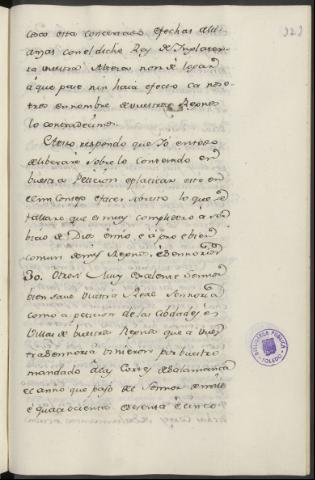 323
cosas esta concertadas e fechas a lli
anzas con el dicho Rey de Inglater
ra vuestra Alteza non dé logar
á que pase nin haia efecto ca noso
tros en nombre de vuestros Regnos
lo contradecimos.
A esto respondo que Yo entiendo
deliberar sobre lo contenido en
vuestra Peticion e platicar esto en
el mi Consejo e facer sobre ello lo que se
fallare que es muy complidero a ser
bicio de Dios é mio e á pro e bien
comun de mis Regnos, é Sennorios
30. Otrosi Muy excelente Sennor
bien save vuestra Real Sennoria
como a peticion de las Cibdades é
Villas de vuestros Regnos que á vues
tra Sennoria vinieron por vuestro
mandado á las Cortes de Salamanca
el anno que pasó del Sennor de mill
é quatrocientos é sesenta é cinco
BIBLIOTECA PUBLICA
TOLEDO